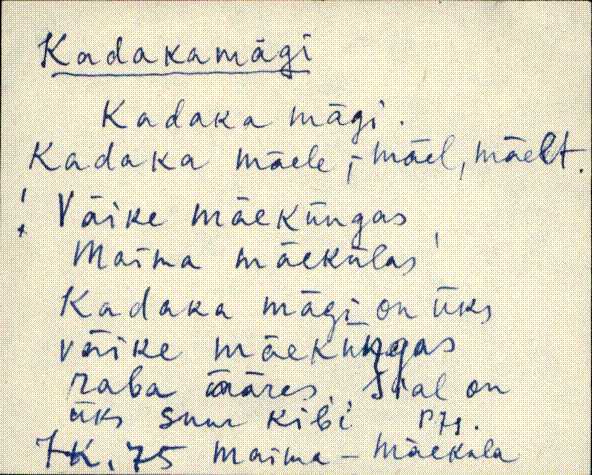 Kadakamägi
Kadaka mägi.
Kadaka mäele, -mäel, mäelt.
! Väike mäeküngas
Maima mäekülas
Kadaka mägi on üks
väike mäeküngas
raba ääres. Seal on
üks suur kibi
P71.
JK. 75 Maima - Mäeküla